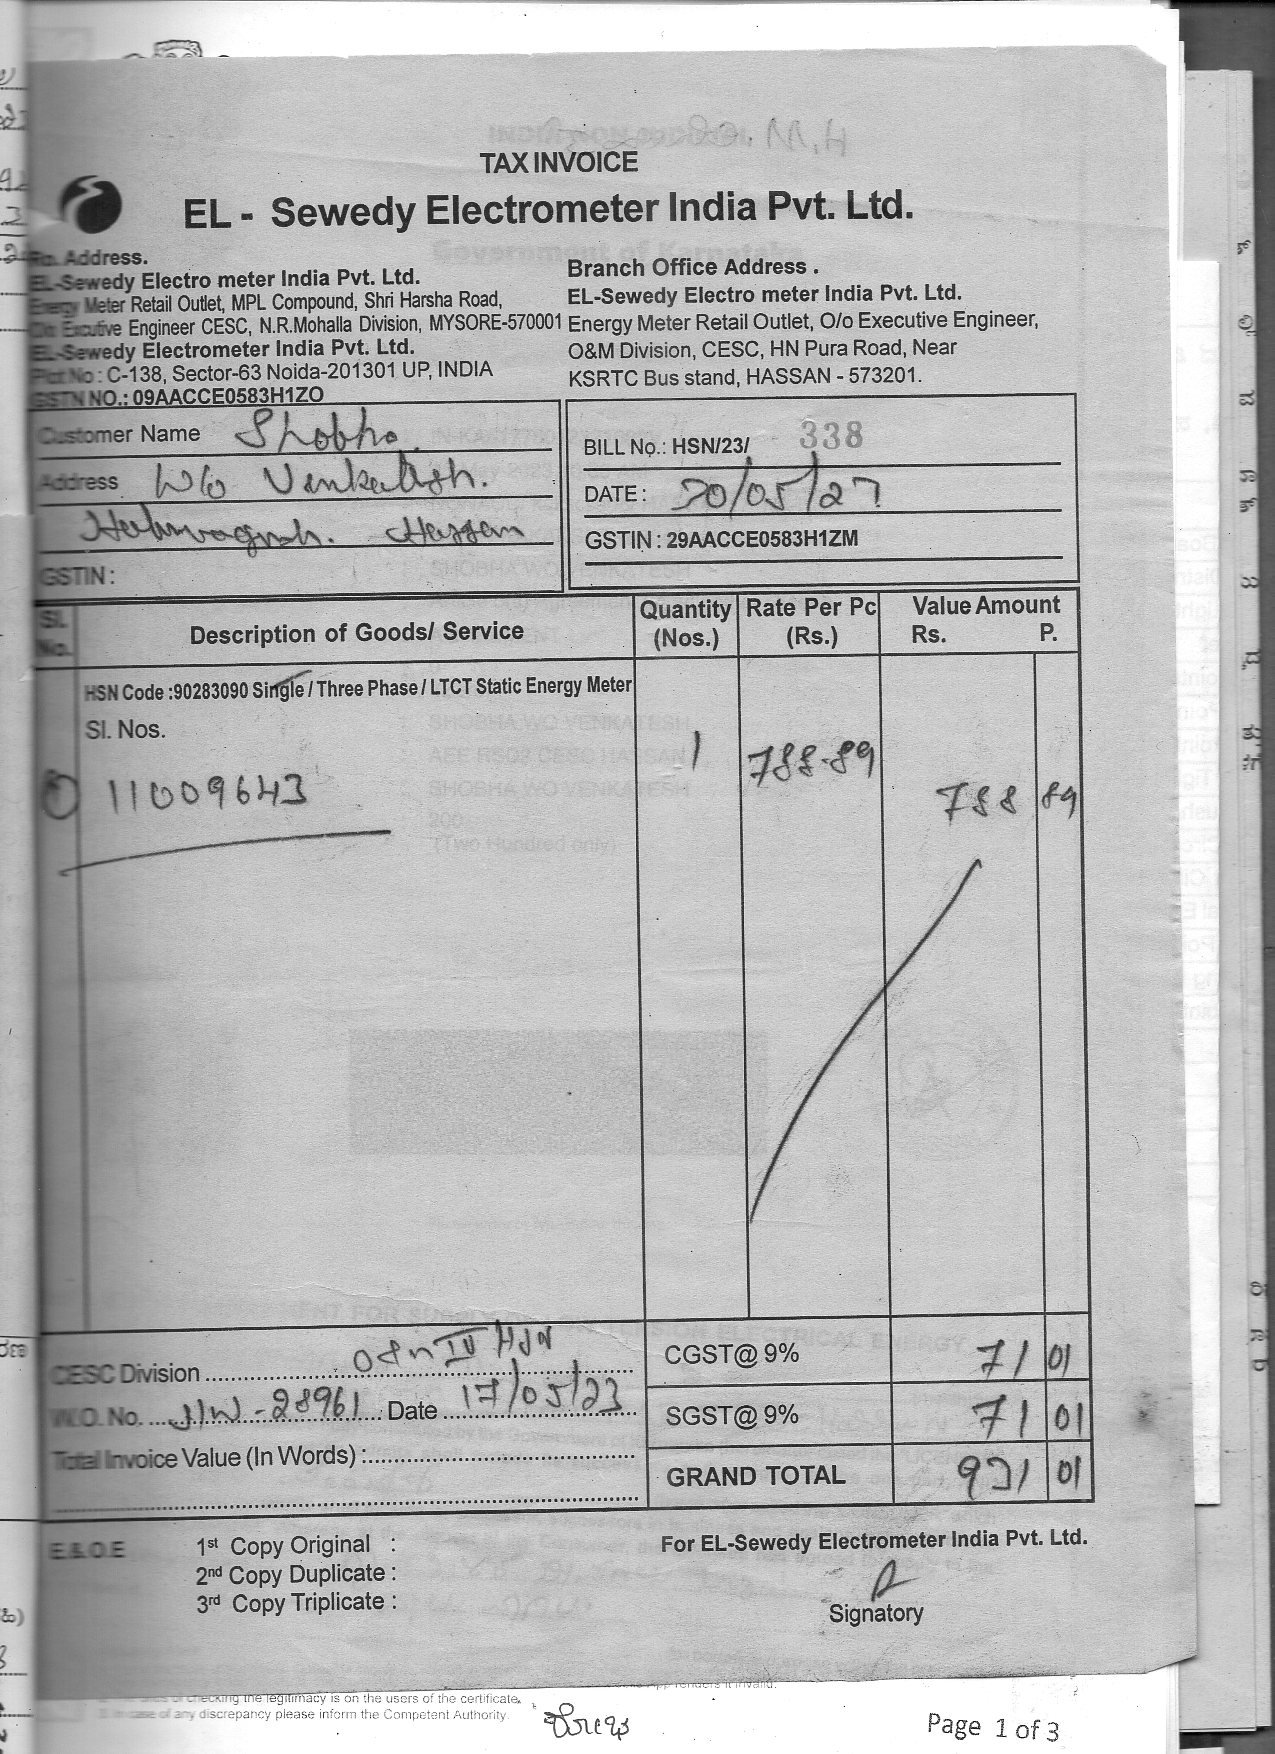 TAX INVOICE
EL - Sewedy Electrometer India Pvt. Ltd.
Address.
EL-Sewedy Electro meter India Pvt. Ltd.
Energy Meter Retail Outlet, MPL Compound, Shri Harsha Road,
Executive Engineer CESC, N.R.Mohalla Division, MYSORE-570001
EL-Sewedy Electrometer India Pvt. Ltd.
Plot No : C-138, Sector-63 Noida-201301 UP, INDIA
GSTN NO.: 09AACCE0583H1ZO
Branch Office Address .
EL-Sewedy Electro meter India Pvt. Ltd.
Energy Meter Retail Outlet, O/o Executive Engineer,
O&M Division, CESC, HN Pura Road, Near
KSRTC Bus stand, HASSAN - 573201.
Customer Name Shobha
Address W/o Venkatesh.
Hassan
GSTIN :
BILL No.: HSN/23/ 338
DATE : 20/05/23
GSTIN : 29AACCE0583H1ZM
Sl. No. Description of Goods/ Service Quantity (Nos.) Rate Per Pc (Rs.) Value Amount Rs. P.
HSN Code :90283090 Single / Three Phase / LTCT Static Energy Meter
Sl. Nos.
1 11009643 1 788.89 788 89
CESC Division HSN
CGST@ 9% 71 01
W.O. No. 28961 Date 17/05/23
SGST@ 9% 71 01
Total Invoice Value (In Words) :
GRAND TOTAL 931 01
E & O E
1st Copy Original :
2nd Copy Duplicate :
3rd Copy Triplicate :
For EL-Sewedy Electrometer India Pvt. Ltd.
Signatory
checking the legitimacy is on the users of the certificate.
In case of any discrepancy please inform the Competent Authority.
Page 1 of 3